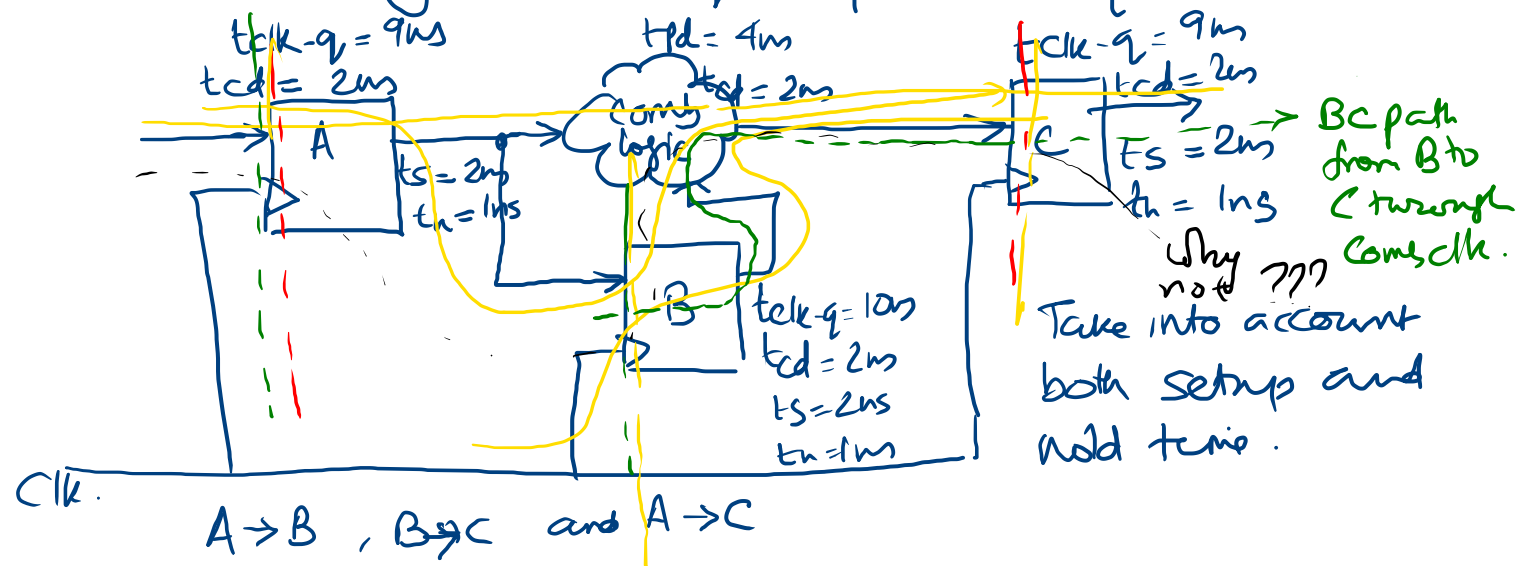 tclk-q = 9ns
tcd = 2ns
A
ts = 2ns
th = 1ns
tpd = 4ns
tcd = 2ns
Comb
logic
B
tclk-q = 10ns
tcd = 2ns
ts = 2ns
th = 1ns
tclk-q = 9ns
tcd = 2ns
C
ts = 2ns
th = 1ns
BC path
from B to
C through
Combclk.
Why
not ???
Take into account
both setup and
hold time.
Clk.
A → B , B → C and A → C